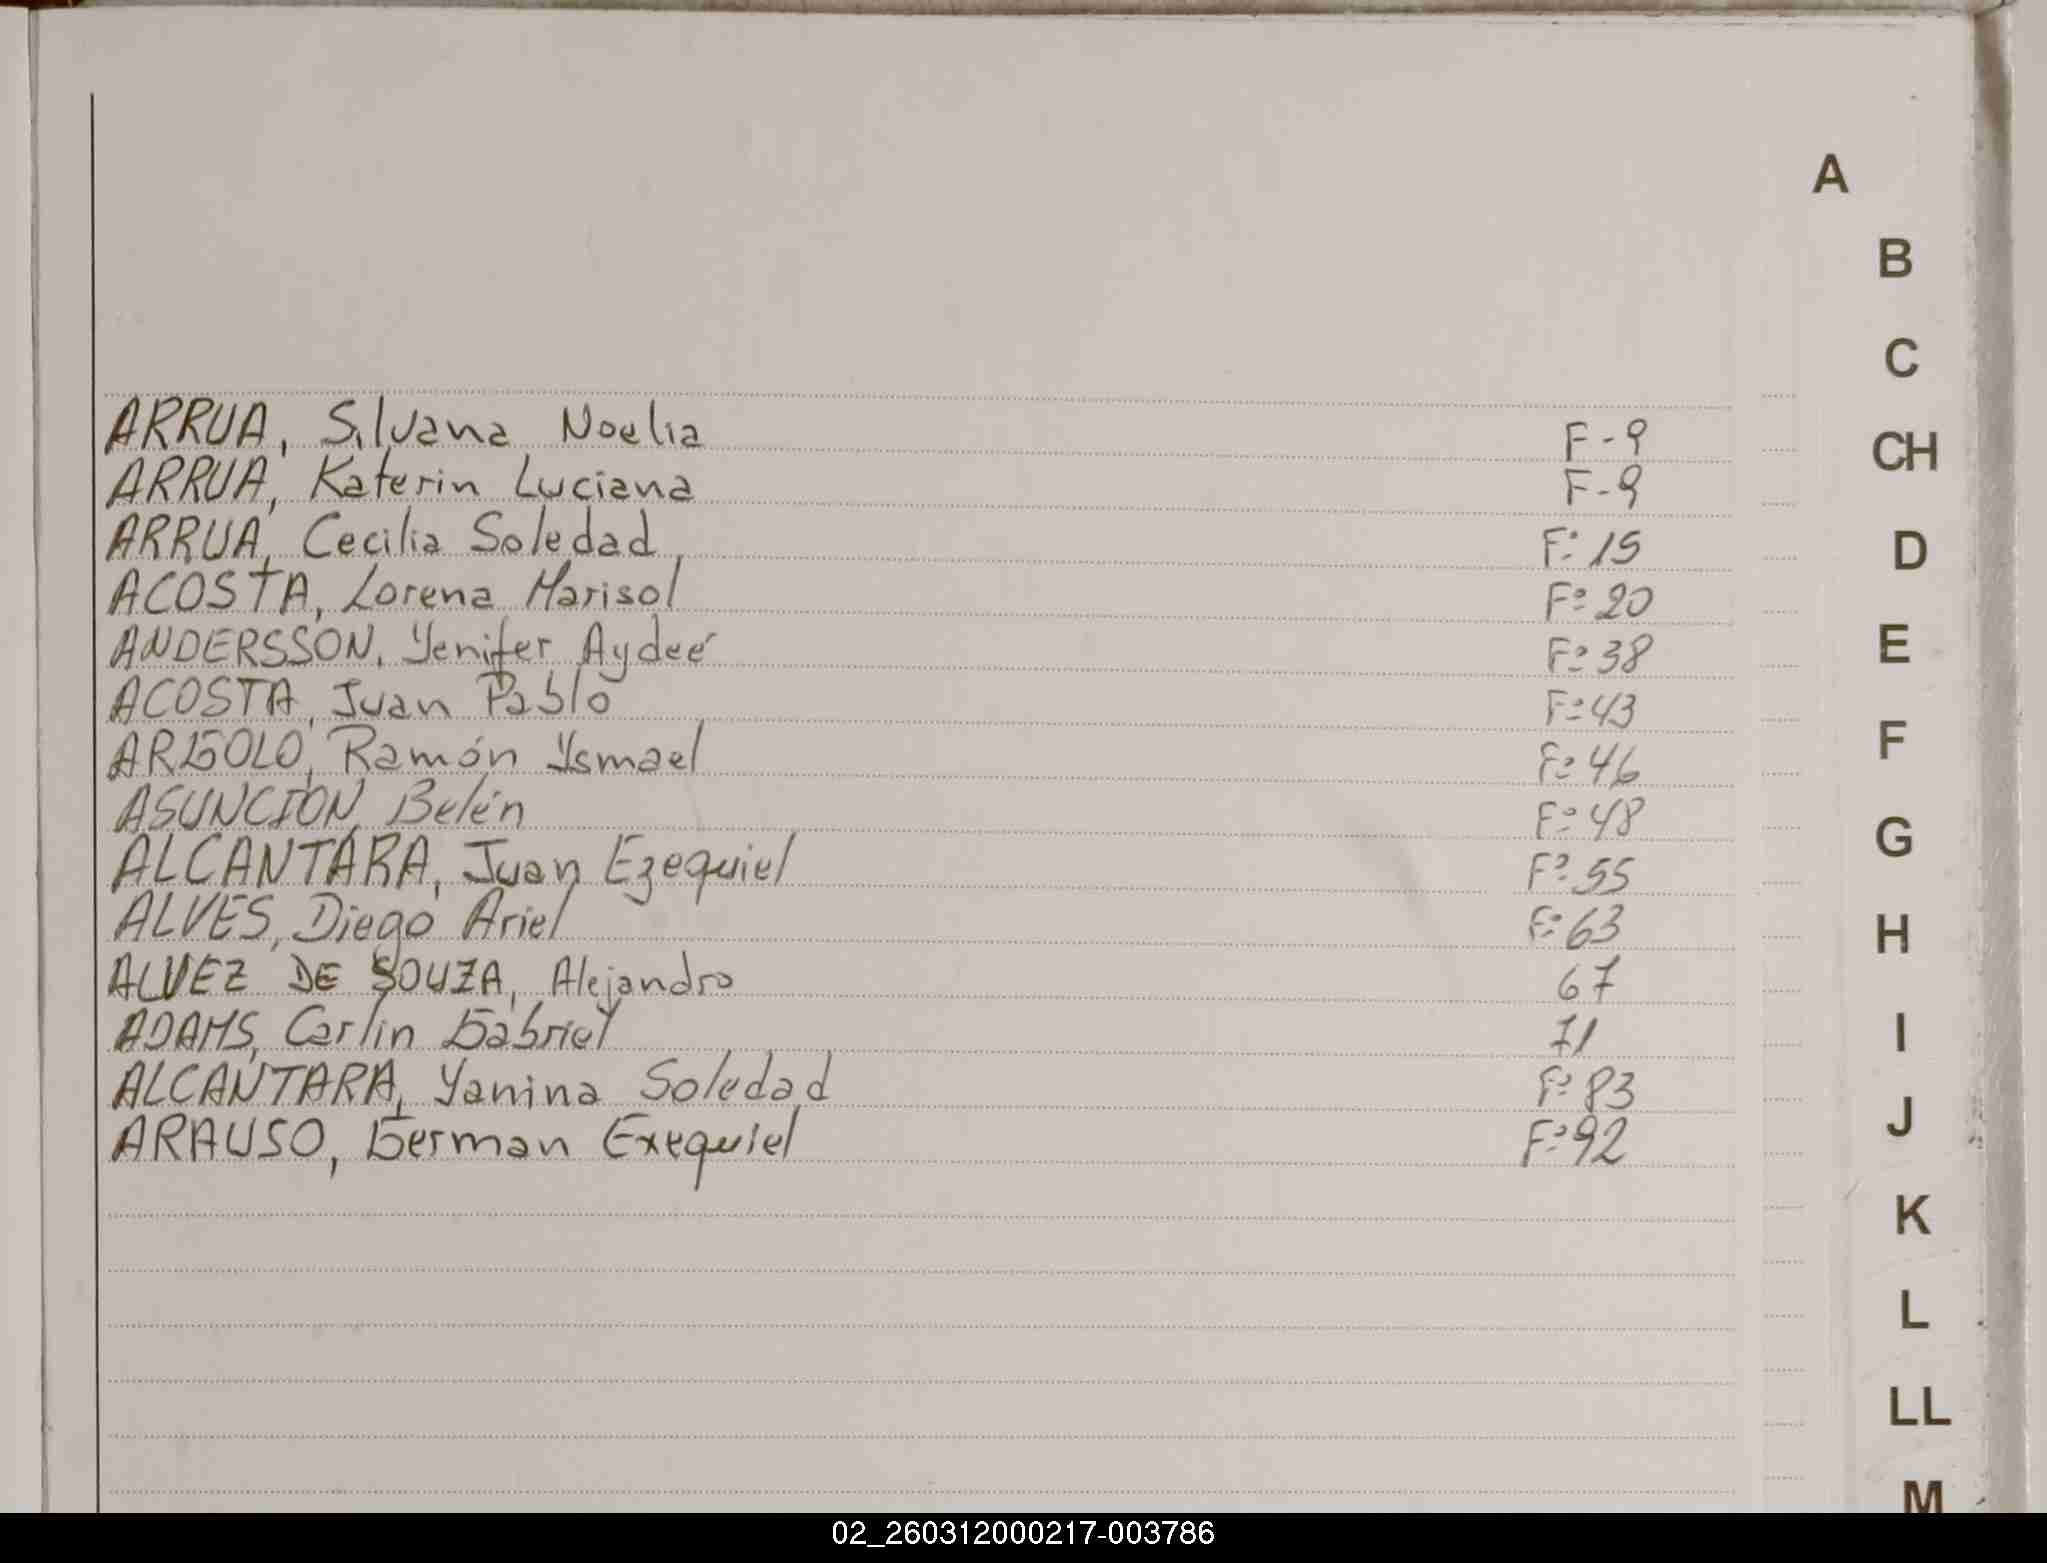 A
B
C
ARRUA, Silvana Noelia F-9
CH
ARRUA, Katerin Luciana F-9
ARRUA, Cecilia Soledad F: 15
D
ACOSTA, Lorena Marisol F: 20
ANDERSSON, Yenifer Aydeé F: 38
E
ACOSTA, Juan Pablo F: 43
ARGOLO, Ramón Ysmael F: 46
F
ASUNCION, Belén F: 48
G
ALCANTARA, Juan Ezequiel F: 55
ALVES, Diego Ariel F: 63
H
ALVEZ DE SOUZA, Alejandro 67
ADAMS, Carlin Gabriel 71
I
ALCANTARA, Yanina Soledad F: 83
ARAUSO, German Exequiel F: 92
J
K
L
LL
M
02_260312000217-003786